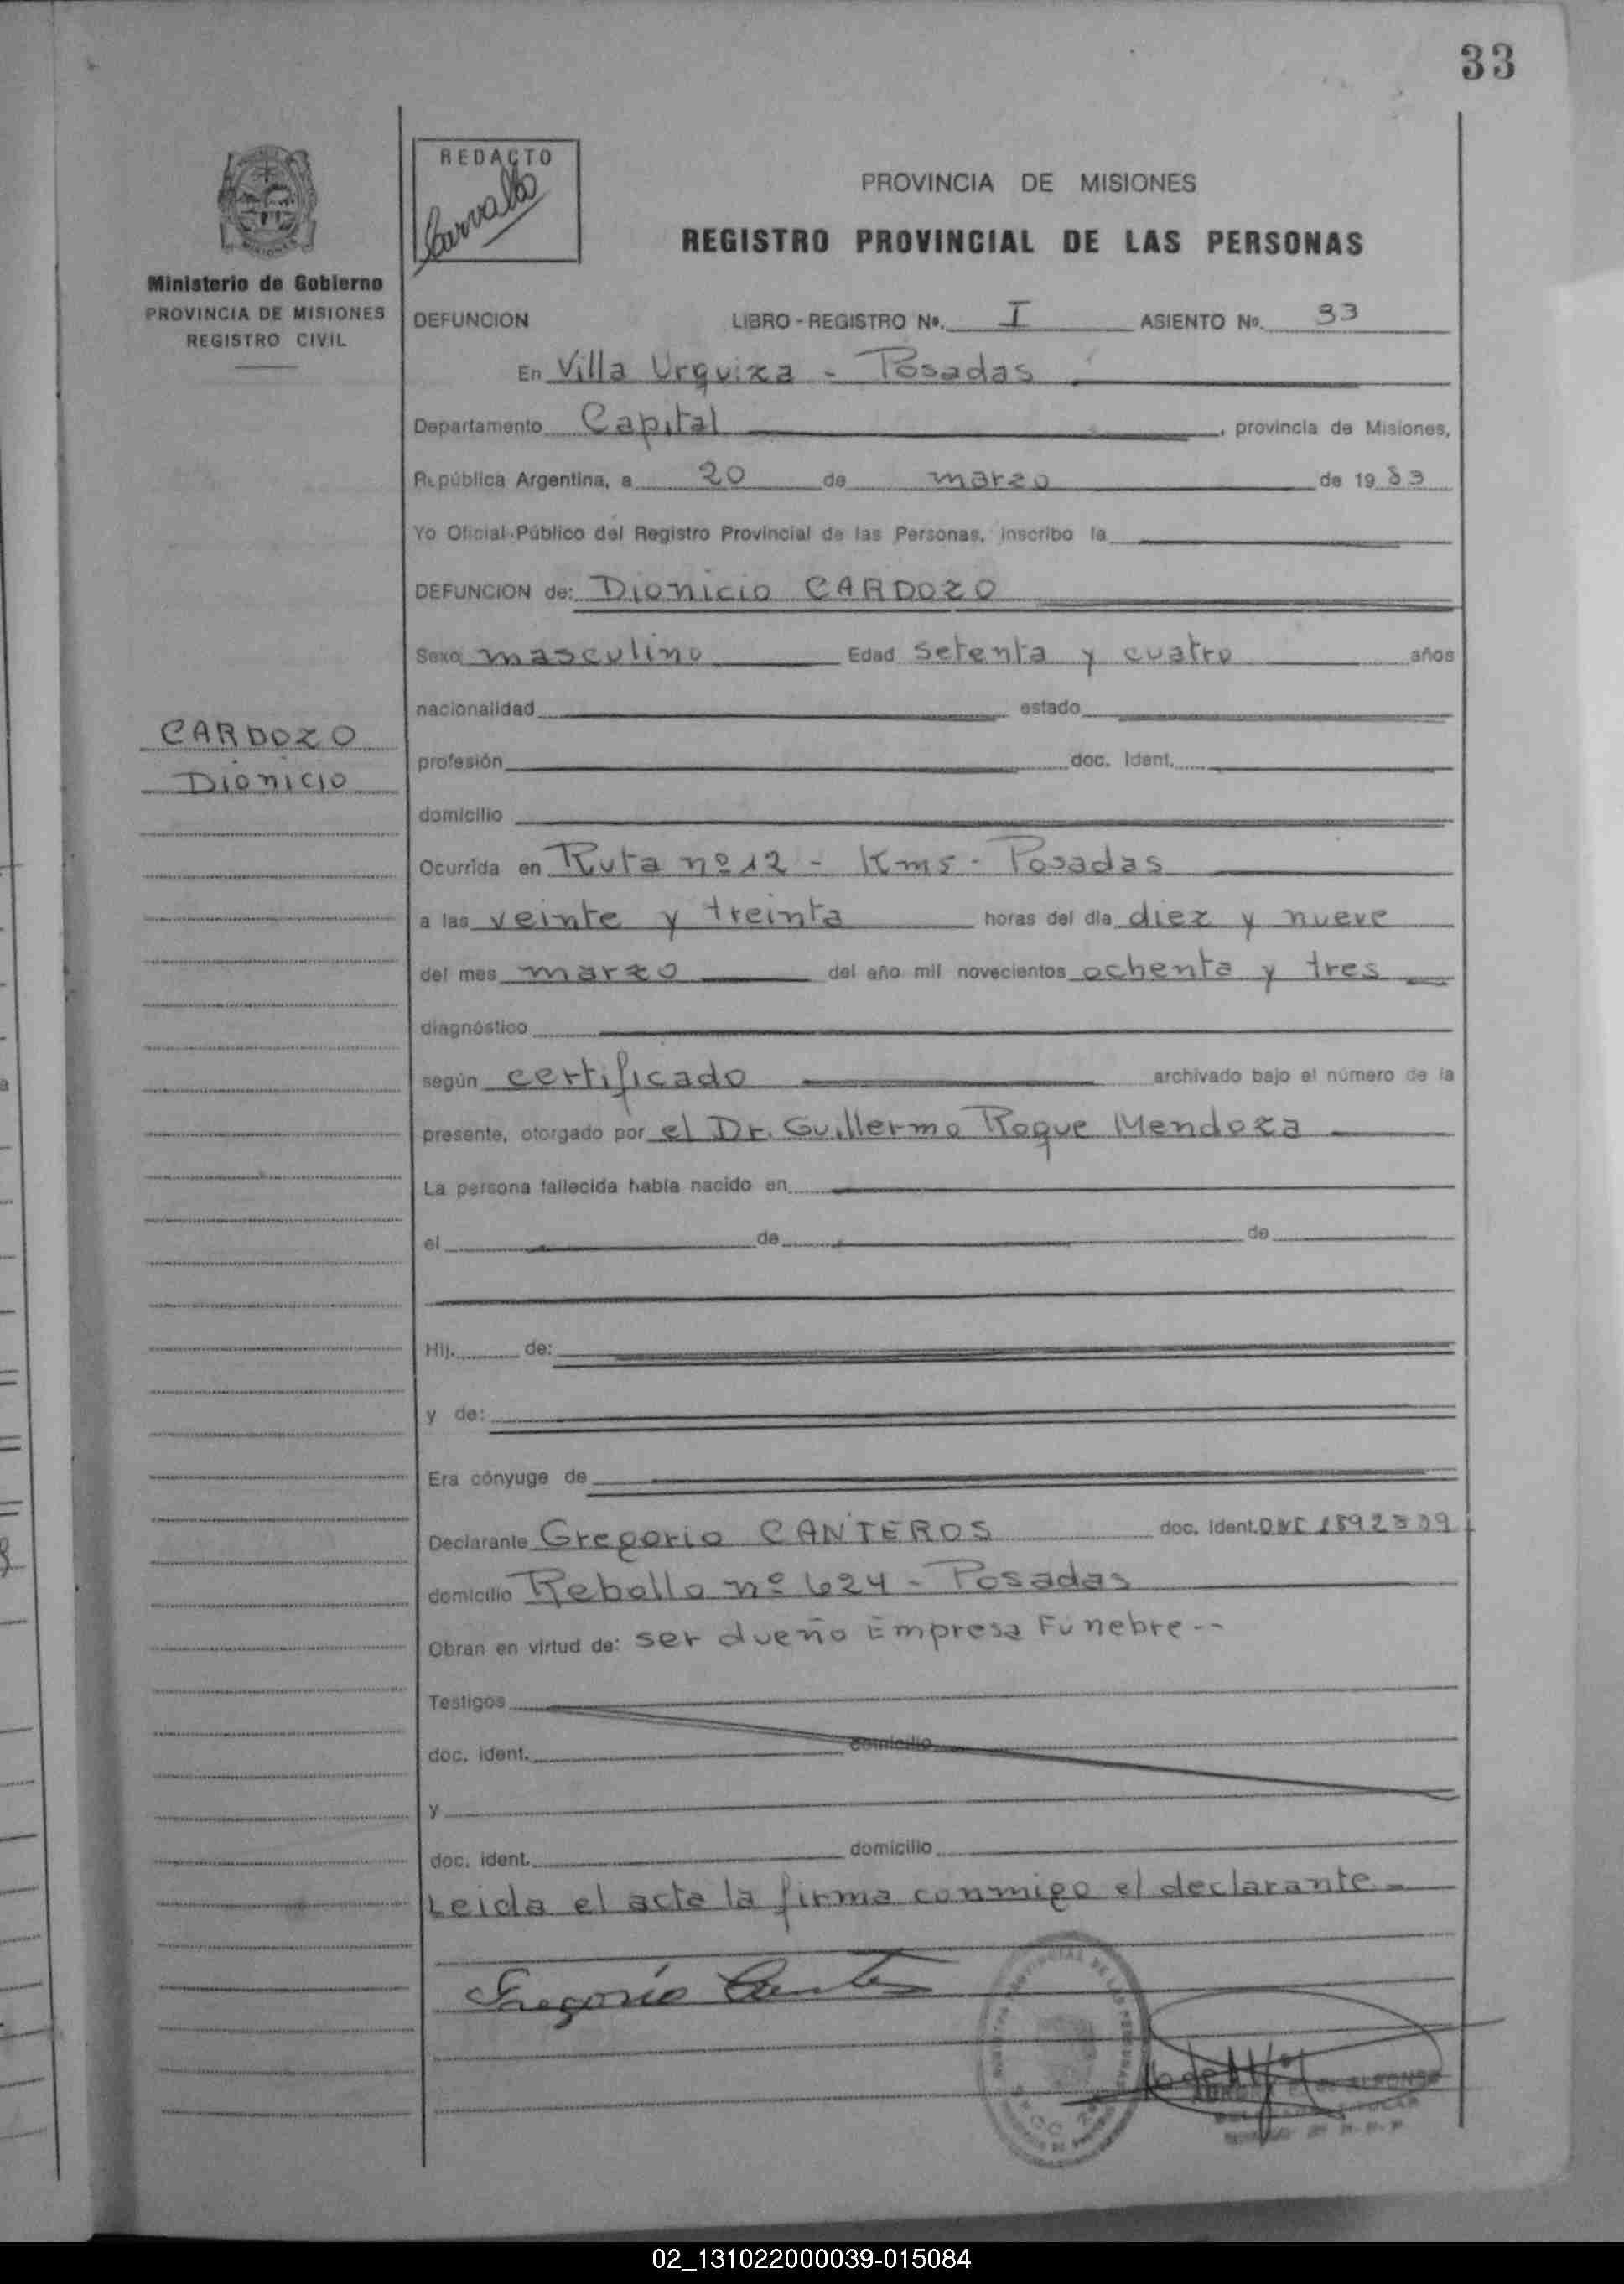 33
REDACTO
Carvallo
PROVINCIA DE MISIONES
REGISTRO PROVINCIAL DE LAS PERSONAS
Ministerio de Gobierno
PROVINCIA DE MISIONES
REGISTRO CIVIL
DEFUNCION LIBRO - REGISTRO Nº. I ASIENTO Nº. 33
En Villa Urquiza - Posadas
Departamento Capital, provincia de Misiones,
República Argentina, a 20 de marzo de 1983
Yo Oficial Público del Registro Provincial de las Personas, inscribo la
DEFUNCION de: Dionicio CARDOZO
Sexo masculino Edad setenta y cuatro años
nacionalidad estado
CARDOZO
Dionicio
profesión doc. Ident.
domicilio
Ocurrida en Ruta nº 12 - Km5 - Posadas
a las veinte y treinta horas del día diez y nueve
del mes marzo del año mil novecientos ochenta y tres
diagnóstico
según certificado archivado bajo el número de la
presente, otorgado por el Dr. Guillermo Roque Mendoza
La persona fallecida había nacido en
el de de
Hij. de:
y de:
Era cónyuge de
Declarante Gregorio CANTEROS doc. Ident.
domicilio Rebollo nº 624 - Posadas
Obran en virtud de: ser dueño Empresa Funebre --
Testigos
doc. ident. domicilio
y
doc. ident. domicilio
Leida el acta la firma conmigo el declarante -
Gregorio
02_131022000039-015084